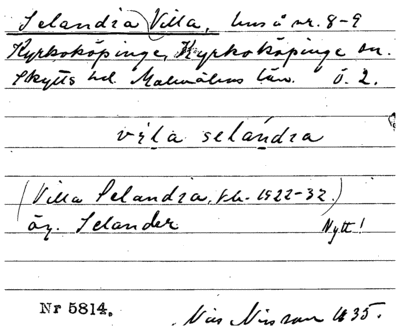 Selandia Villa, hus å nr. 8-9
Kyrkoköpinge, Kyrkoköpinge sn.
Skytts hd. Malmöhus län. Ö. 2.
vila selándia
(Villa Selandia, fb. 1922-32.)
äg. Selander Nytt!
Nr 5814. Nils Nilsson 1935.